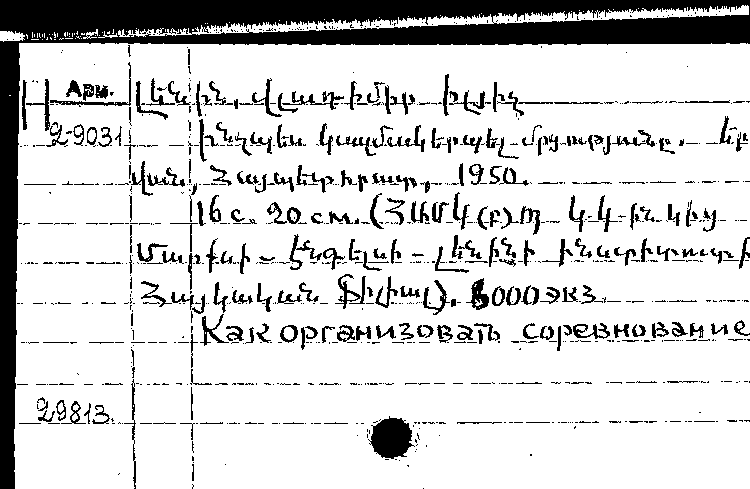 Арм. Լենին, Վլադիմիր Իլյիչ
2-9031 Ինչպես կազմակերպել մրցությունը. Եր
վան, Հայպետհրատ, 1950.
16 с. 20 см. (ՀամԿ(բ)Պ ԿԿ-ին կից
Մարքսի - Էնգելսի - Լենինի ինստիտուտի
Հայկական Ֆիլիալ). 5000 экз.
Как организовать соревнование
29813.